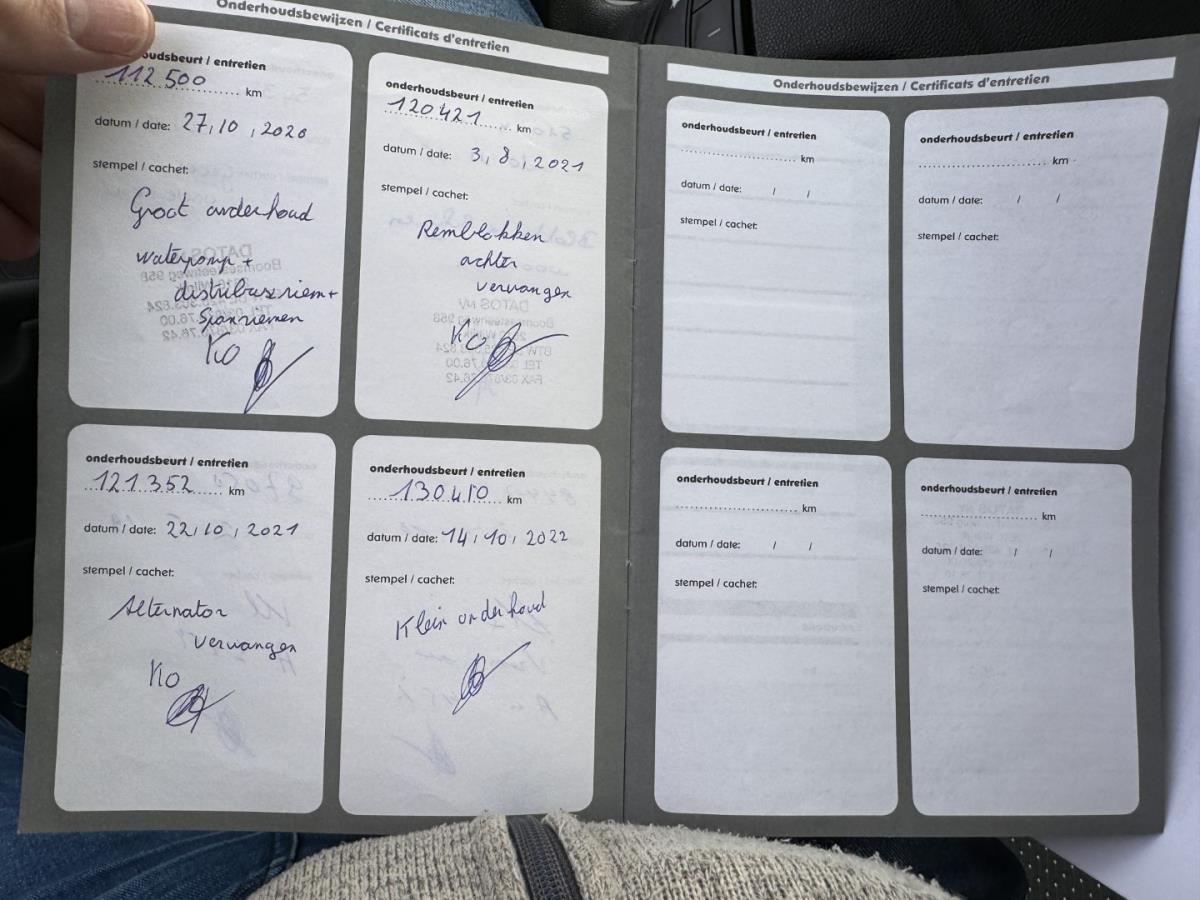 Onderhoudsbewijzen / Certificats d'entretien
oudsbeurt / entretien
112 500 km
datum / date: 27 / 10 / 2020
stempel / cachet:
Groot onderhoud
waterpomp +
distributieriem +
Spanriemen
KO
onderhoudsbeurt / entretien
120421 km
datum / date: 3 / 8 / 2021
stempel / cachet:
Remblokken
achter
vervangen
KO
onderhoudsbeurt / entretien
121 352 km
datum / date: 22 / 10 / 2021
stempel / cachet:
Alternator
vervangen
KO
onderhoudsbeurt / entretien
130410 km
datum / date: 14 / 10 / 2022
stempel / cachet:
Klein onderhoud
Onderhoudsbewijzen / Certificats d'entretien
onderhoudsbeurt / entretien
km
datum / date: / /
stempel / cachet:
onderhoudsbeurt / entretien
km
datum / date: / /
stempel / cachet:
onderhoudsbeurt / entretien
km
datum / date: / /
stempel / cachet:
onderhoudsbeurt / entretien
km
datum / date: / /
stempel / cachet: